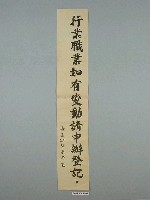 行業職業如有變動請申辦登記。